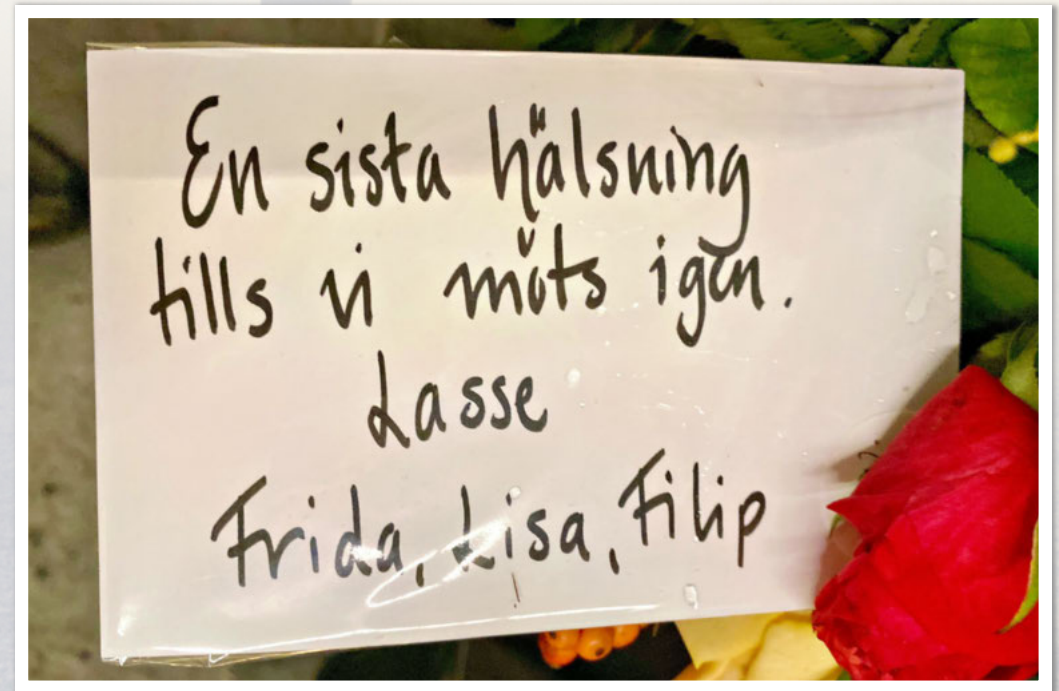 En sista hälsning
tills vi möts igen.
Lasse
Frida, Lisa, Filip